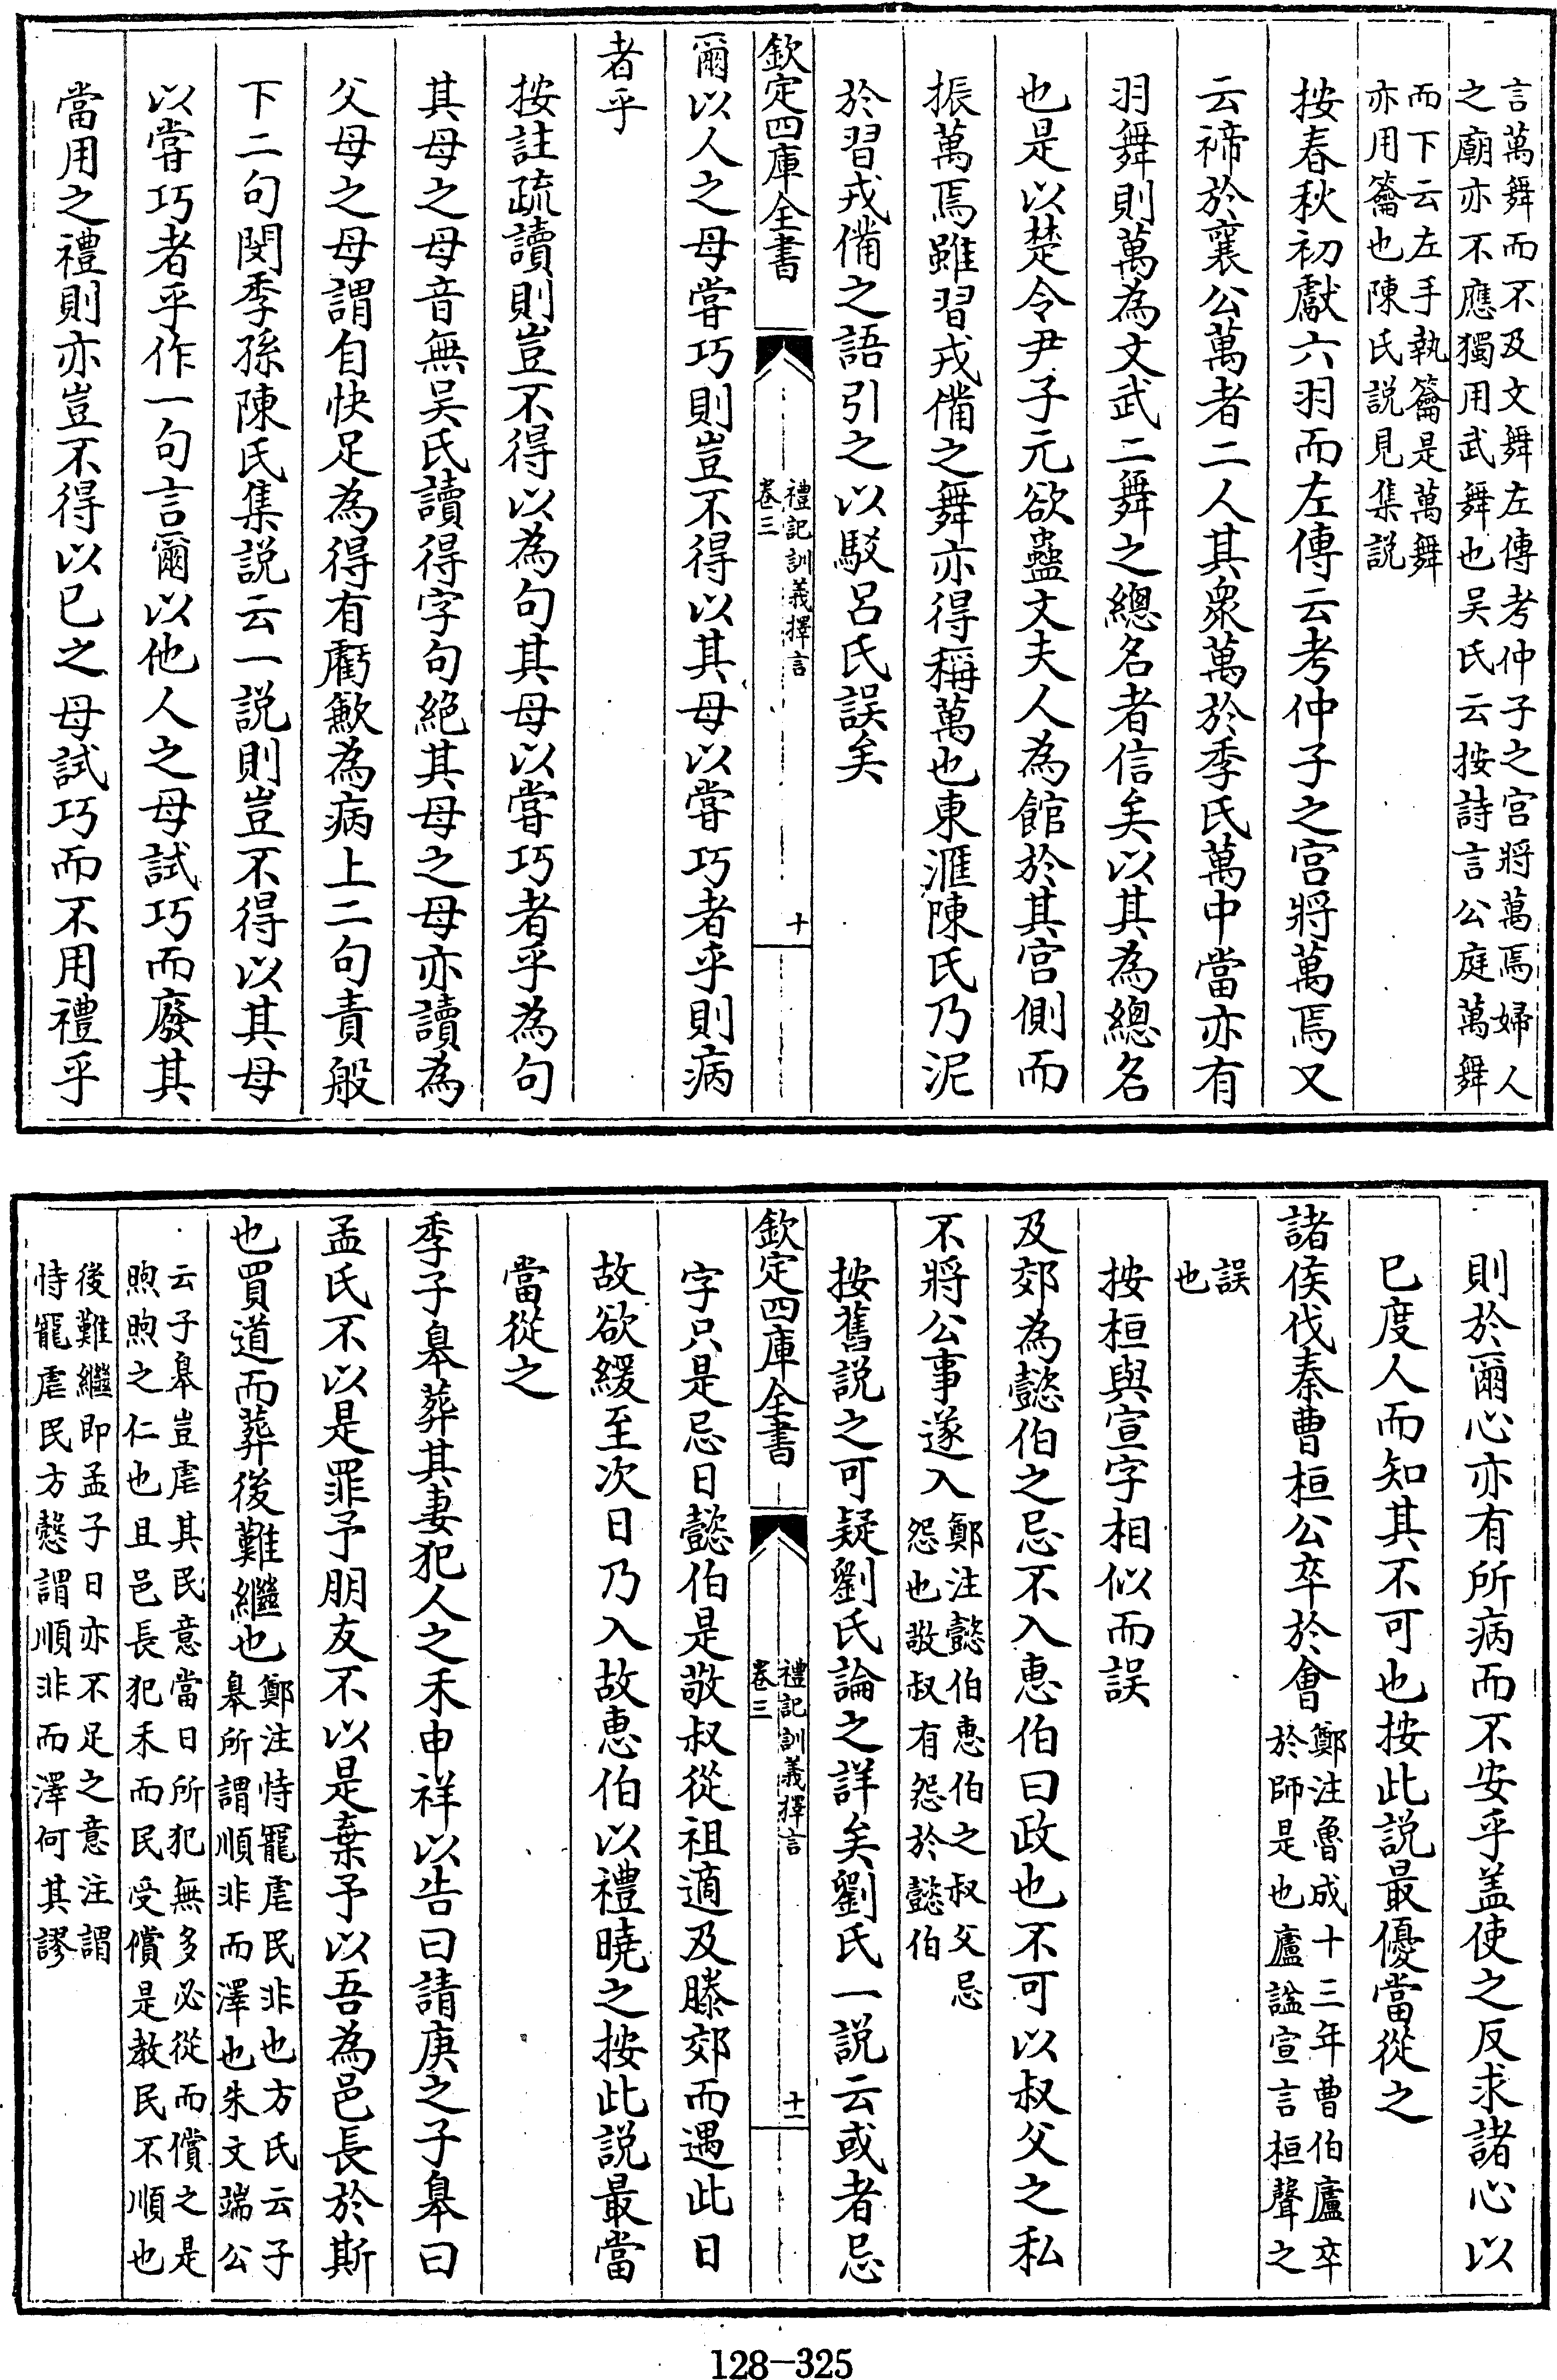 言萬舞而不及文舞左傳考仲子之宮將萬焉婦人
之廟亦不應獨用武舞也吴氏云按詩言公庭萬舞
而下云左手執籥是萬舞
亦用籥也陳氏說見集說
按春秋初獻六羽而左傳云考仲子之宮將萬焉又
云禘於襄公萬者二人其衆萬於季氏萬中當亦有
羽舞則萬為文武二舞之總名者信矣以其為總名
也是以楚令尹子元欲蠱文夫人為館於其宮側而
振萬焉雖習戎備之舞亦得稱萬也東滙陳氏乃泥
於習戎備之語引之以駁呂氏誤矣
欽定四庫全書
禮記訓義擇言
卷三
十
爾以人之母嘗巧則豈不得以其母以嘗巧者乎則病
者乎
按註疏讀則豈不得以為句其母以嘗巧者乎為句
其母之母音無吴氏讀得字句絕其母之母亦讀為
父母之母謂自快足為得有虧歉為病上二句責般
下二句閔季孫陳氏集說云一說則豈不得以其母
以嘗巧者乎作一句言爾以他人之母試巧而廢其
當用之禮則亦豈不得以巳之母試巧而不用禮乎
則於爾心亦有所病而不安乎盖使之反求諸心以
巳度人而知其不可也按此說最優當從之
諸侯伐秦曹桓公卒於會
鄭注魯成十三年曹伯廬卒
於師是也廬諡宣言桓聲之
誤
也
按桓與宣字相似而誤
及郊為懿伯之忌不入惠伯曰政也不可以叔父之私
不將公事遂入
鄭注懿伯惠伯之叔父忌
怨也敬叔有怨於懿伯
按舊說之可疑劉氏論之詳矣劉氏一說云或者忌
欽定四庫全書
禮記訓義擇言
卷三
十一
字只是忌日懿伯是敬叔從祖適及滕郊而遇此日
故欲緩至次日乃入故惠伯以禮曉之按此說最當
當從之
季子皋葬其妻犯人之禾申祥以告曰請庚之子皋曰
孟氏不以是罪予朋友不以是棄予以吾為邑長於斯
也買道而葬後難繼也
鄭注恃寵虐民非也方氏云子
皋所謂順非而澤也朱文端公
云子皋豈虐其民意當日所犯無多必從而償之是
煦煦之仁也且邑長犯禾而民受償是教民不順也
後難繼即孟子日亦不足之意注謂
恃寵虐民方慤謂順非而澤何其謬
128-325